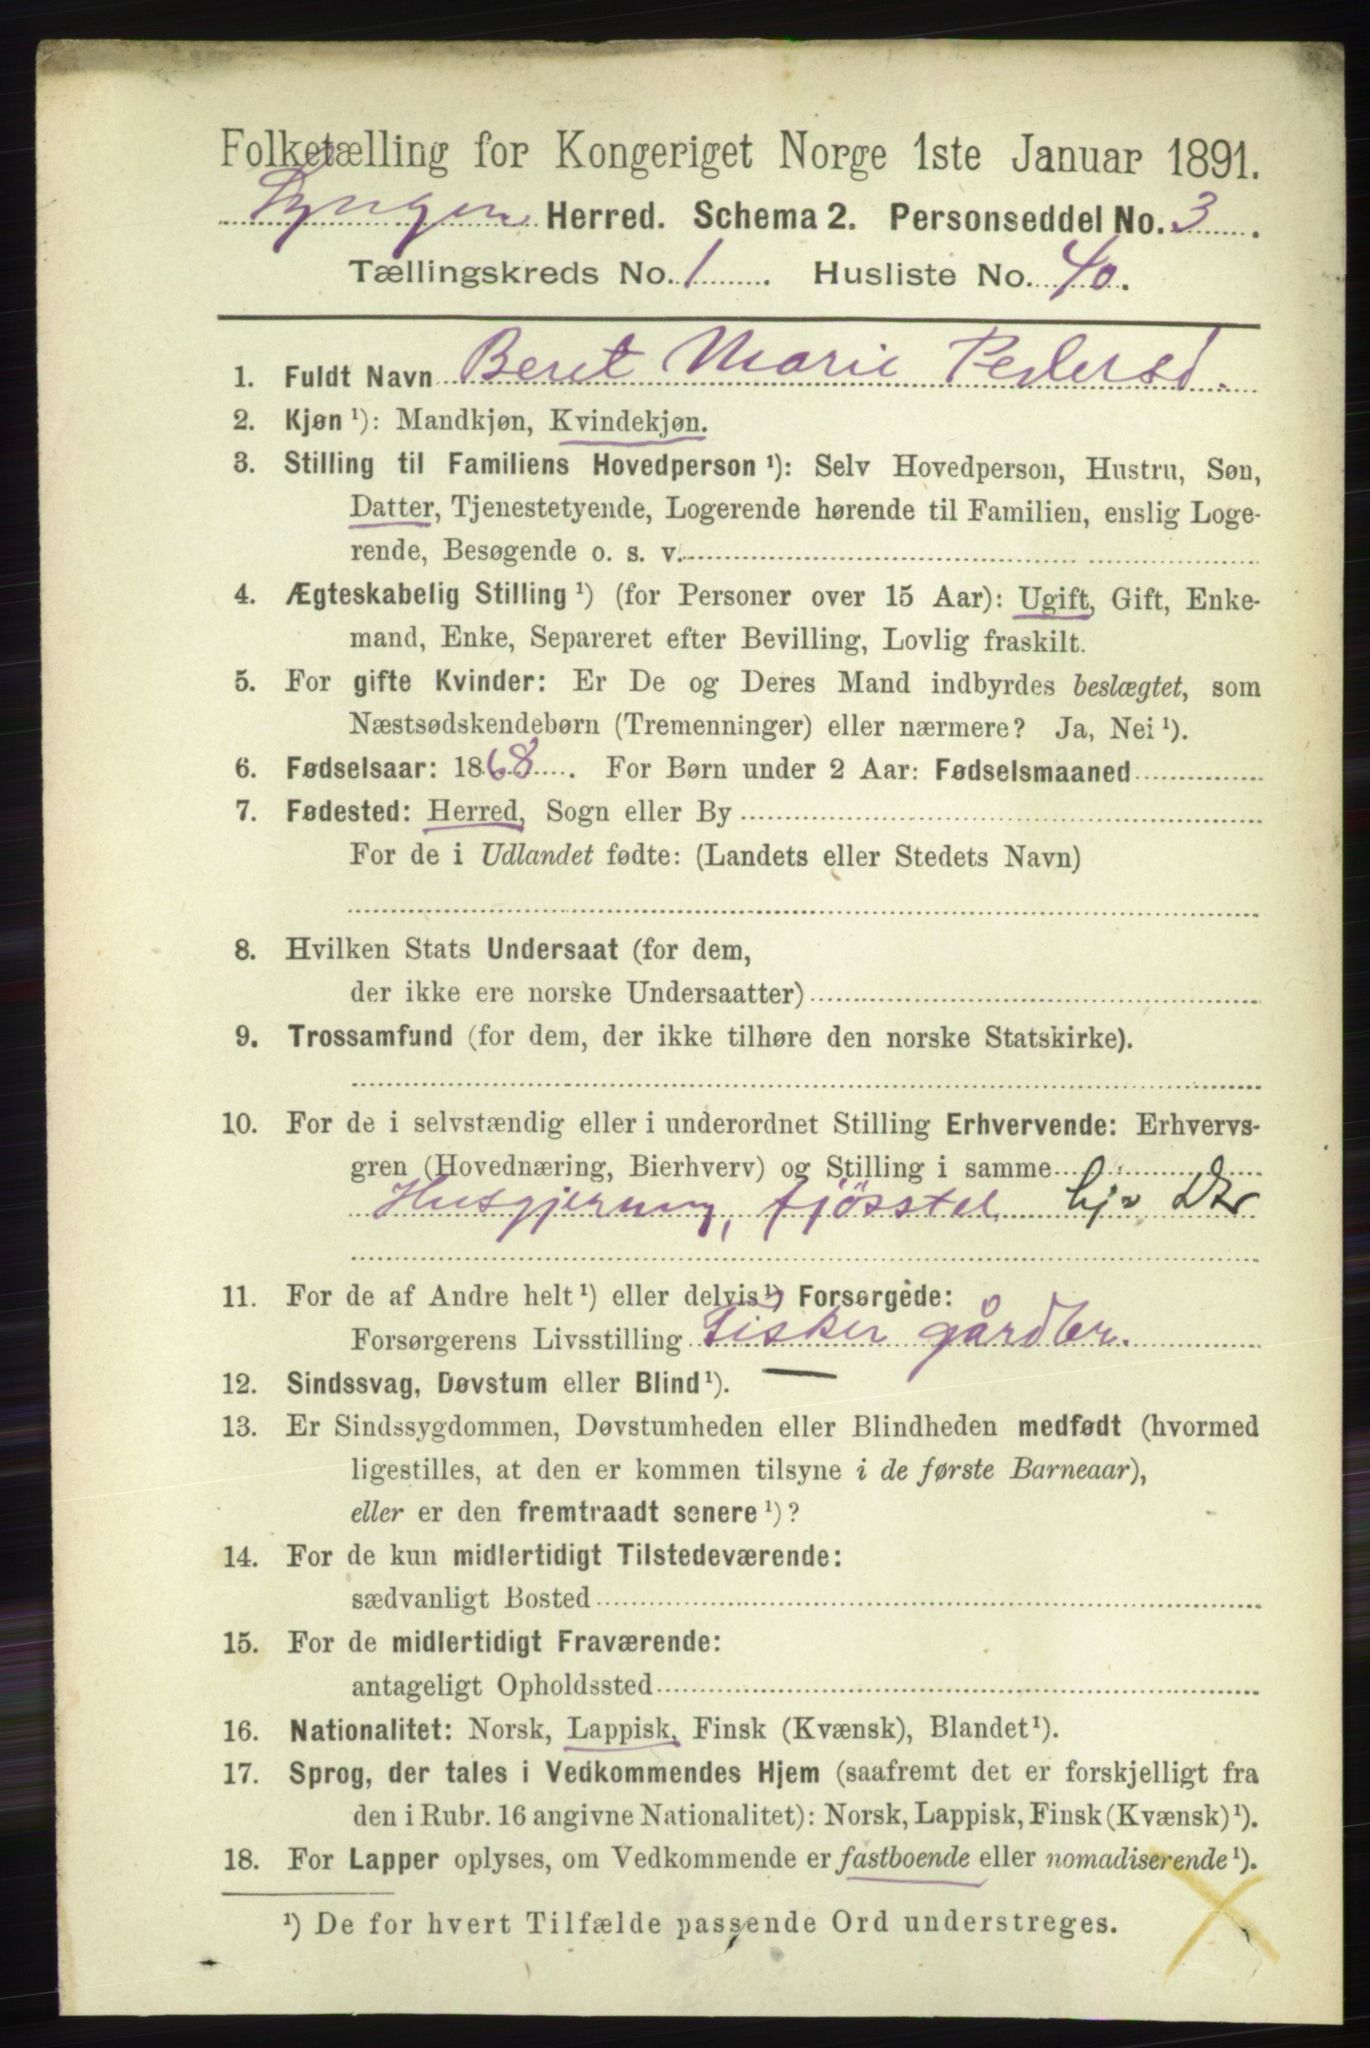 Folketælling for Kongeriget Norge 1ste Januar 1891.
Lyngen Herred. Schema 2. Personseddel No. 3.
Tællingskreds No. 1. Husliste No. 40.
1. Fuldt Navn Beret Marie Pedersd.
2. Kjøn ¹): Mandkjøn, Kvindekjøn.
3. Stilling til Familiens Hovedperson ¹): Selv Hovedperson, Hustru, Søn,
Datter, Tjenestetyende, Logerende hørende til Familien, enslig Loge-
rende, Besøgende o. s. v.
4. Ægteskabelig Stilling ¹) (for Personer over 15 Aar): Ugift, Gift, Enke-
mand, Enke, Separeret efter Bevilling, Lovlig fraskilt.
5. For gifte Kvinder: Er De og Deres Mand indbyrdes beslægtet, som
Næstsødskendebørn (Tremenninger) eller nærmere? Ja, Nei ¹).
6. Fødselsaar: 1868. For Børn under 2 Aar: Fødselsmaaned
7. Fødested: Herred, Sogn eller By
For de i Udlandet fødte: (Landets eller Stedets Navn)
8. Hvilken Stats Undersaat (for dem,
der ikke ere norske Undersaatter)
9. Trossamfund (for dem, der ikke tilhøre den norske Statskirke).
10. For de i selvstændig eller i underordnet Stilling Erhvervende: Erhvervs-
gren (Hovednæring, Bierhverv) og Stilling i samme
Husgjerning, fjösstel hj. Dtr
11. For de af Andre helt ¹) eller delvis ¹) Forsørgede:
Forsørgerens Livsstilling Fisker gårdbr.
12. Sindssvag, Døvstum eller Blind ¹). —
13. Er Sindssygdommen, Døvstumheden eller Blindheden medfødt (hvormed
ligestilles, at den er kommen tilsyne i de første Barneaar),
eller er den fremtraadt senere ¹)?
14. For de kun midlertidigt Tilstedeværende:
sædvanligt Bosted
15. For de midlertidigt Fraværende:
antageligt Opholdssted
16. Nationalitet: Norsk, Lappisk, Finsk (Kvænsk), Blandet ¹).
17. Sprog, der tales i Vedkommendes Hjem (saafremt det er forskjelligt fra
den i Rubr. 16 angivne Nationalitet): Norsk, Lappisk, Finsk (Kvænsk) ¹).
18. For Lapper oplyses, om Vedkommende er fastboende eller nomadiserende ¹).
¹) De for hvert Tilfælde passende Ord understreges.